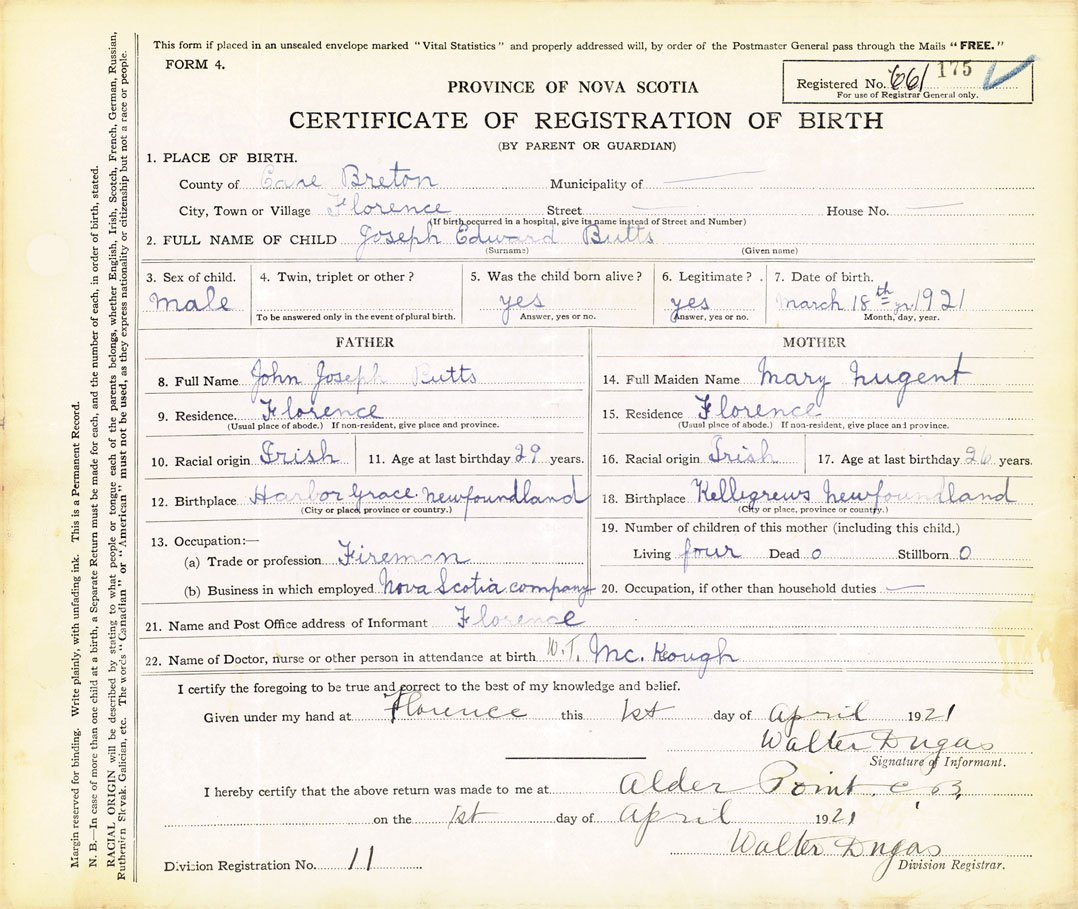 This form if placed in an unsealed envelope marked "Vital Statistics" and properly addressed will, by order of the Postmaster General pass through the Mails "FREE."
FORM 4.
Registered No. 661 175
For use of Registrar General only.
PROVINCE OF NOVA SCOTIA
CERTIFICATE OF REGISTRATION OF BIRTH
(BY PARENT OR GUARDIAN)
1. PLACE OF BIRTH.
County of Cape Breton Municipality of —
City, Town or Village Florence Street — House No. —
(If birth occurred in a hospital, give its name instead of Street and Number)
2. FULL NAME OF CHILD Joseph Edward Butts
(Surname) (Given name)
3. Sex of child. 4. Twin, triplet or other? 5. Was the child born alive? 6. Legitimate? 7. Date of birth.
male yes yes March 18th yr 1921
To be answered only in the event of plural birth. Answer, yes or no. Answer, yes or no. Month, day, year.
FATHER MOTHER
8. Full Name John Joseph Butts 14. Full Maiden Name Mary Nugent
9. Residence. Florence 15. Residence Florence
(Usual place of abode.) If non-resident, give place and province. (Usual place of abode.) If non-resident, give place and province.
10. Racial origin Irish 11. Age at last birthday 29 years. 16. Racial origin Irish 17. Age at last birthday 26 years.
12. Birthplace Harbor Grace Newfoundland 18. Birthplace Kelligrews Newfoundland
(City or place, province or country.) (City or place, province or country.)
13. Occupation:— 19. Number of children of this mother (including this child.)
(a) Trade or profession Fireman Living four Dead 0 Stillborn 0
(b) Business in which employed Nova Scotia company 20. Occupation, if other than household duties —
21. Name and Post Office address of Informant Florence
22. Name of Doctor, nurse or other person in attendance at birth W. T. Mc. Keough
I certify the foregoing to be true and correct to the best of my knowledge and belief.
Given under my hand at Florence this 1st day of April 1921
Walter Dugas
Signature of Informant.
I hereby certify that the above return was made to me at Alder Point C. B.
on the 1st day of April 1921
Walter Dugas
Division Registration No. 11 Division Registrar.
Margin reserved for binding. Write plainly, with unfading ink. This is a Permanent Record.
N. B.—In case of more than one child at a birth, a Separate Return must be made for each, and the number of each, in order of birth, stated.
RACIAL ORIGIN will be described by stating to what people or tongue each of the parents belongs, whether English, Irish, Scotch, French, German, Russian,
Ruthenian Slovak, Galician, etc. The words "Canadian" or "American" must not be used, as they express nationality or citizenship but not a race or people.